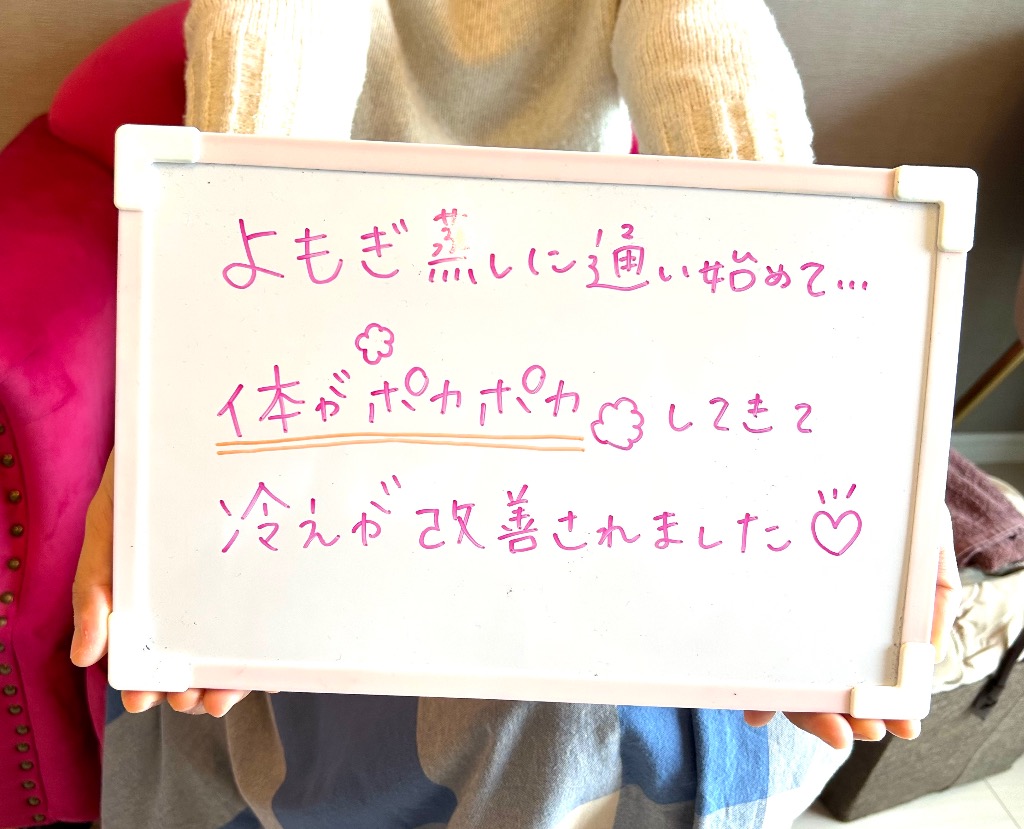 よもぎ蒸しに通い始めて…
体がポカポカしてきて
冷えが改善されました♡